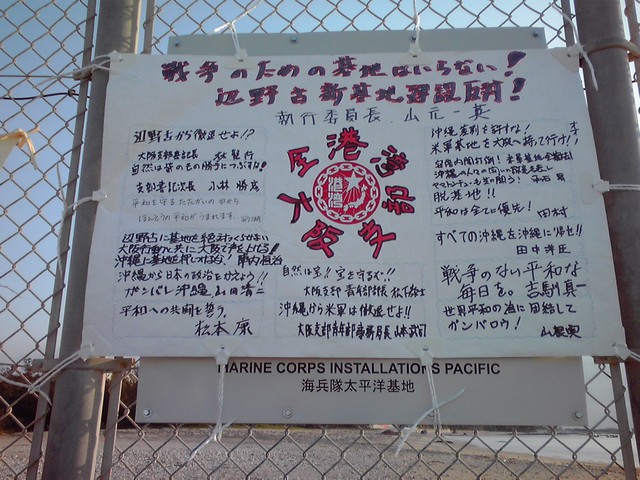 戦争のための基地はいらない!
辺野古新基地建設反対!
執行委員長 山元一英
辺野古から撤退せよ!?
大阪支部長
自然は宝のもの勝手につぶすな!
支部書記長 小林勝彦
平和を守るたたかいの中から
ほんとうの平和がうまれます.
辺野古に基地を絶対つくらせない
大阪行動と共に大阪で声を上げる!
沖縄に基地を押し付けるな! 陣内恒治
沖縄から日本の政治をかえよう!!
ガンバレ沖縄 山田清二
平和への共闘を誓う。
松本康
全港湾
大阪支部
港湾
自然は宝!! 宝を守るぞ!!
大阪支部 青年部長 松下
沖縄から米軍は撤退せよ!!
大阪支部青年部事務局長 山本
沖縄差別を許すな!
米軍基地を大阪へ持って行け!
脱基地!!
平和は全てに優先! 田村
すべての沖縄を沖縄に帰せ!!
田中洋臣
戦争のない平和な
毎日を。 吉駒真一
世界平和の為に団結して
ガンバロウ!
MARINE CORPS INSTALLATIONS PACIFIC
海兵隊太平洋基地